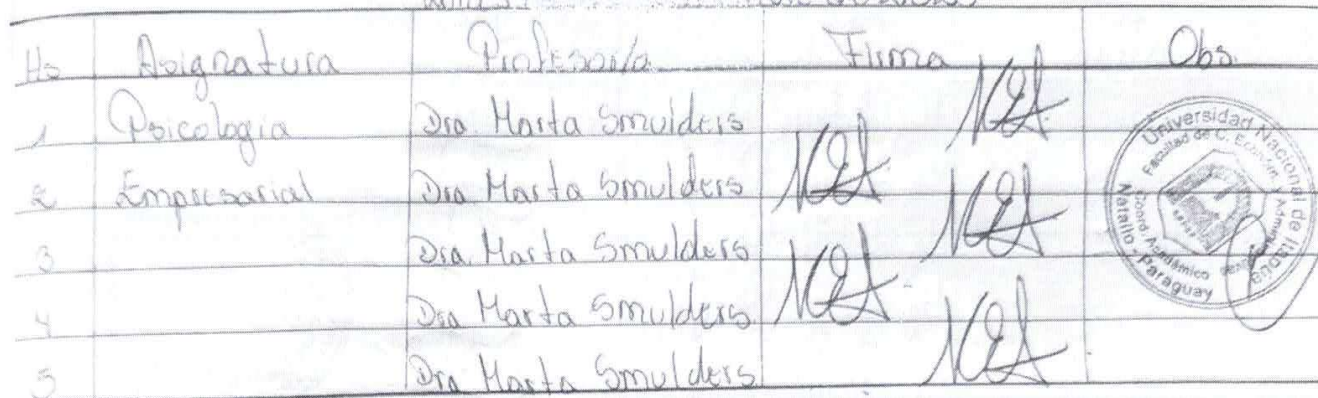 Hs Asignatura Profesor/a Firma Obs.
1 Psicología Dra. Marta Smulders
2 Empresarial Dra Marta Smulders
3 Dra. Marta Smulders
4 Dra Marta Smulders
5 Dra Marta Smulders
Universidad Nacional de Itapúa
Facultad de C. Económ. y Administ.
Coord. Académico
Natalio - Paraguay